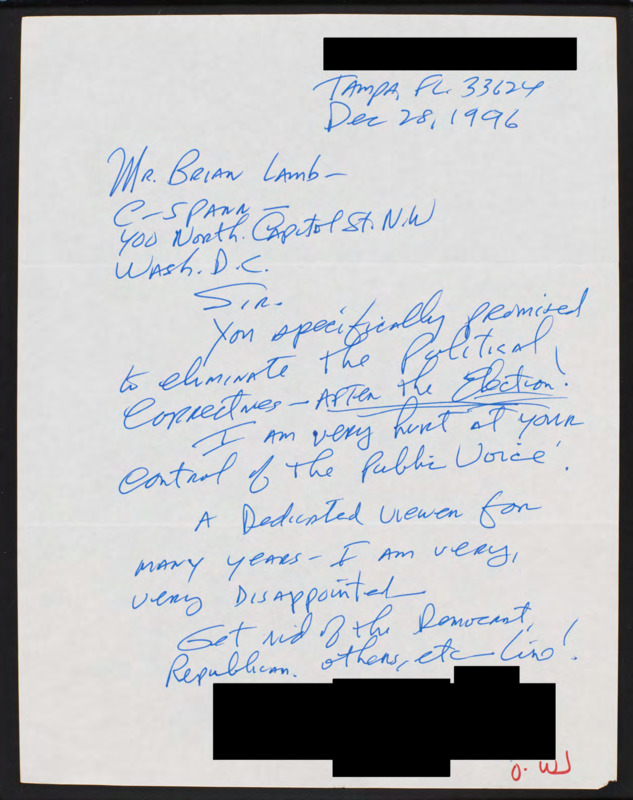 Tampa, FL. 33624
Dec 28, 1996
Mr. Brian Lamb -
C-SPANN -
400 North. Capitol St. N.W
Wash. D.C.
Sir.
You specifically promised
to eliminate the Political
Correctnes - After the Election!
I am very hurt at your
control of the Public Voice!
A Dedicated viewer for
many years - I am very,
very Disappointed
Get rid of the Democrat,
Republican. others, etc - line!